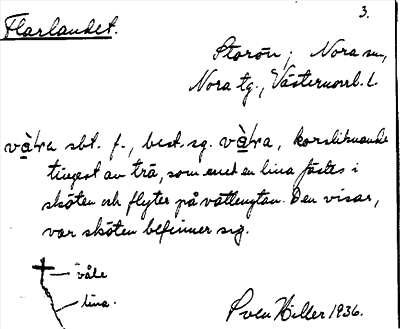 3.
Harlandet.
Storön, Nora sn,
Nora tg., Västernorrl. l.
sbt. f., best. sg. korsliknande
tingest av trä, som med en lina fästes i
sköten och flyter på vattenytan. Den visar,
var sköten befinner sig.
våle
lina.
Sven Hiller 1936.